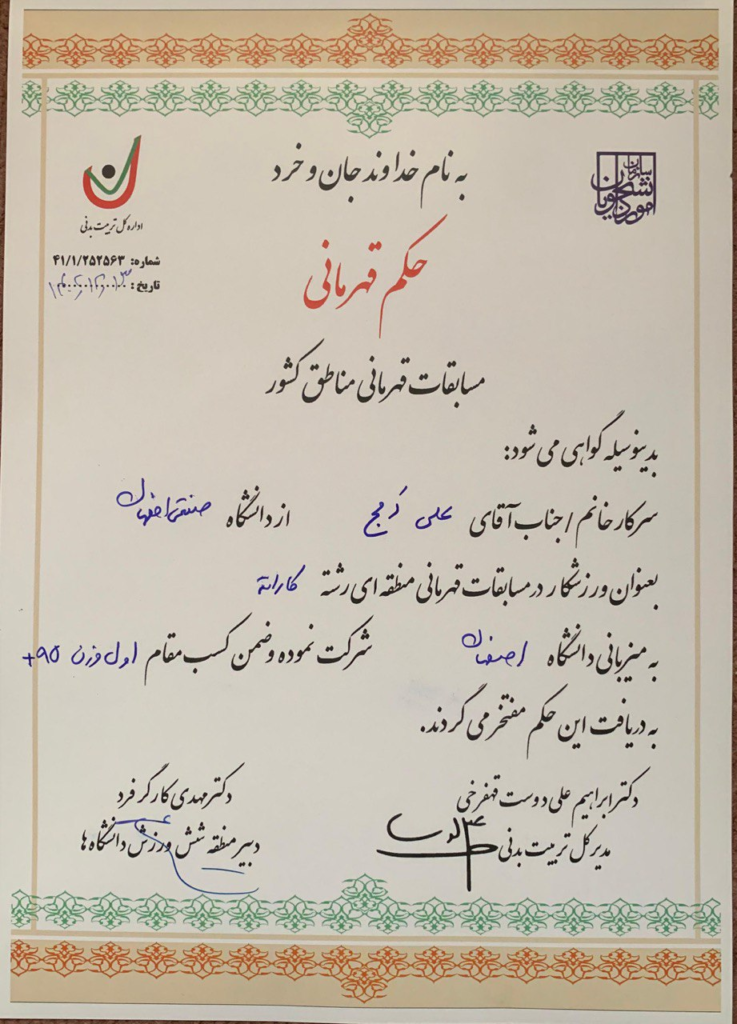 به نام خداوند جان و خرد
سازمان
امور دانشجویان
اداره کل تربیت بدنی
شماره: ۴۱/۱/۲۵۲۵۶۳
تاریخ:
حکم قهرمانی
مسابقات قهرمانی مناطق کشور
بدینوسیله گواهی می شود:
سرکار خانم / جناب آقای علی از دانشگاه صنعتی اصفهان
بعنوان ورزشکار در مسابقات قهرمانی منطقه ای رشته کاراته
به میزبانی دانشگاه اصفهان شرکت نموده و ضمن کسب مقام اول وزن ۹۵+
به دریافت این حکم مفتخر می گردند.
دکتر ابراهیم علی دوست قهفرخی
مدیر کل تربیت بدنی
دکتر مهدی کارگر فرد
دبیر منطقه شش ورزش دانشگاه ها